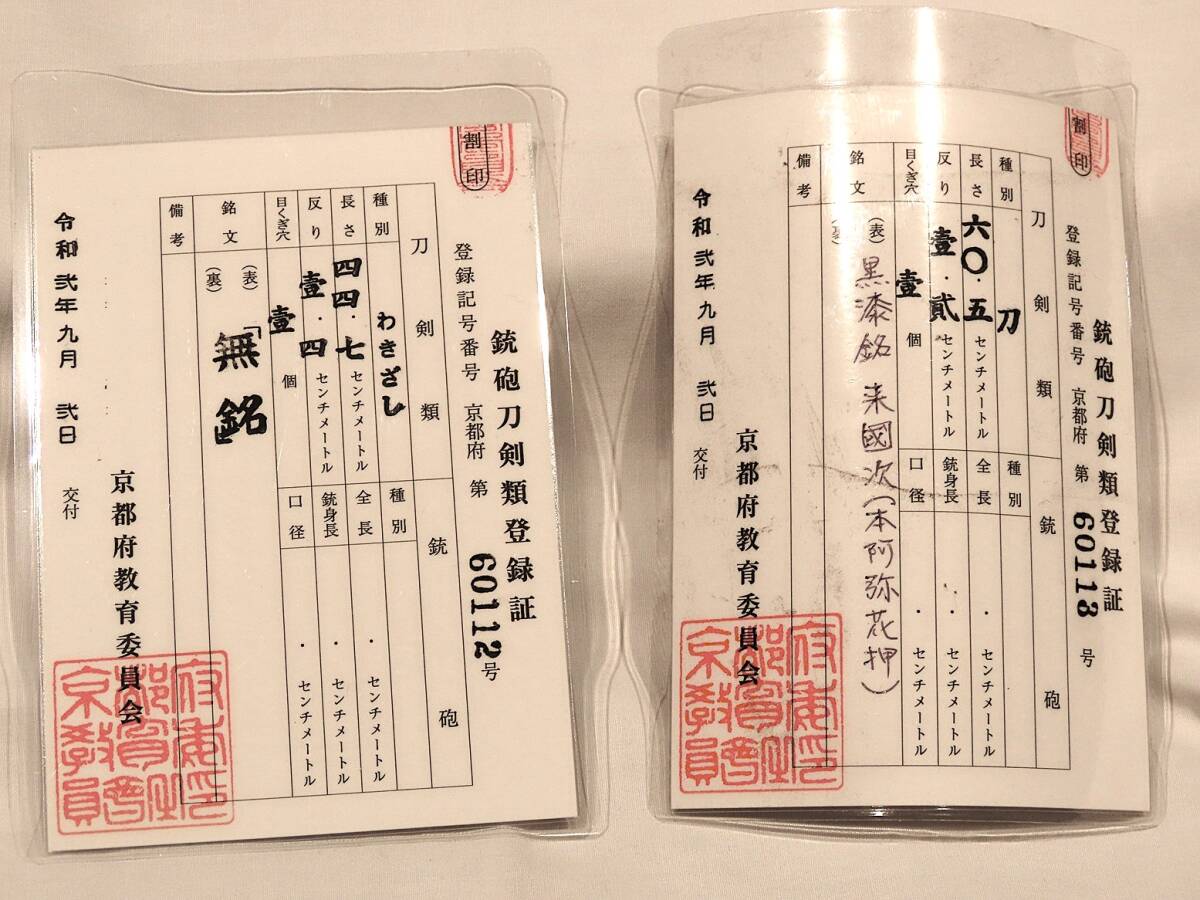 割印
銃砲刀剣類登録証
登録記号番号 京都府 第 60112 号
刀剣類
銃砲
種別 わきざし
種別
長さ 四四・七 センチメートル
全長 ・ センチメートル
反り 壹・四 センチメートル
銃身長 ・ センチメートル
目くぎ穴 壹 個
口径 ・ センチメートル
銘文 (表) 「無銘」
(裏)
備考
令和 弐年 九月 弐日 交付
京都府教育委員会
割印
銃砲刀剣類登録証
登録記号番号 京都府 第 60113 号
刀剣類
銃砲
種別 刀
種別
長さ 六〇・五 センチメートル
全長 ・ センチメートル
反り 壹・貳 センチメートル
銃身長 ・ センチメートル
目くぎ穴 壹 個
口径 ・ センチメートル
銘文 (表) 黒漆銘 来國次(本阿弥花押)
(裏)
備考
令和 弐年 九月 弐日 交付
京都府教育委員会